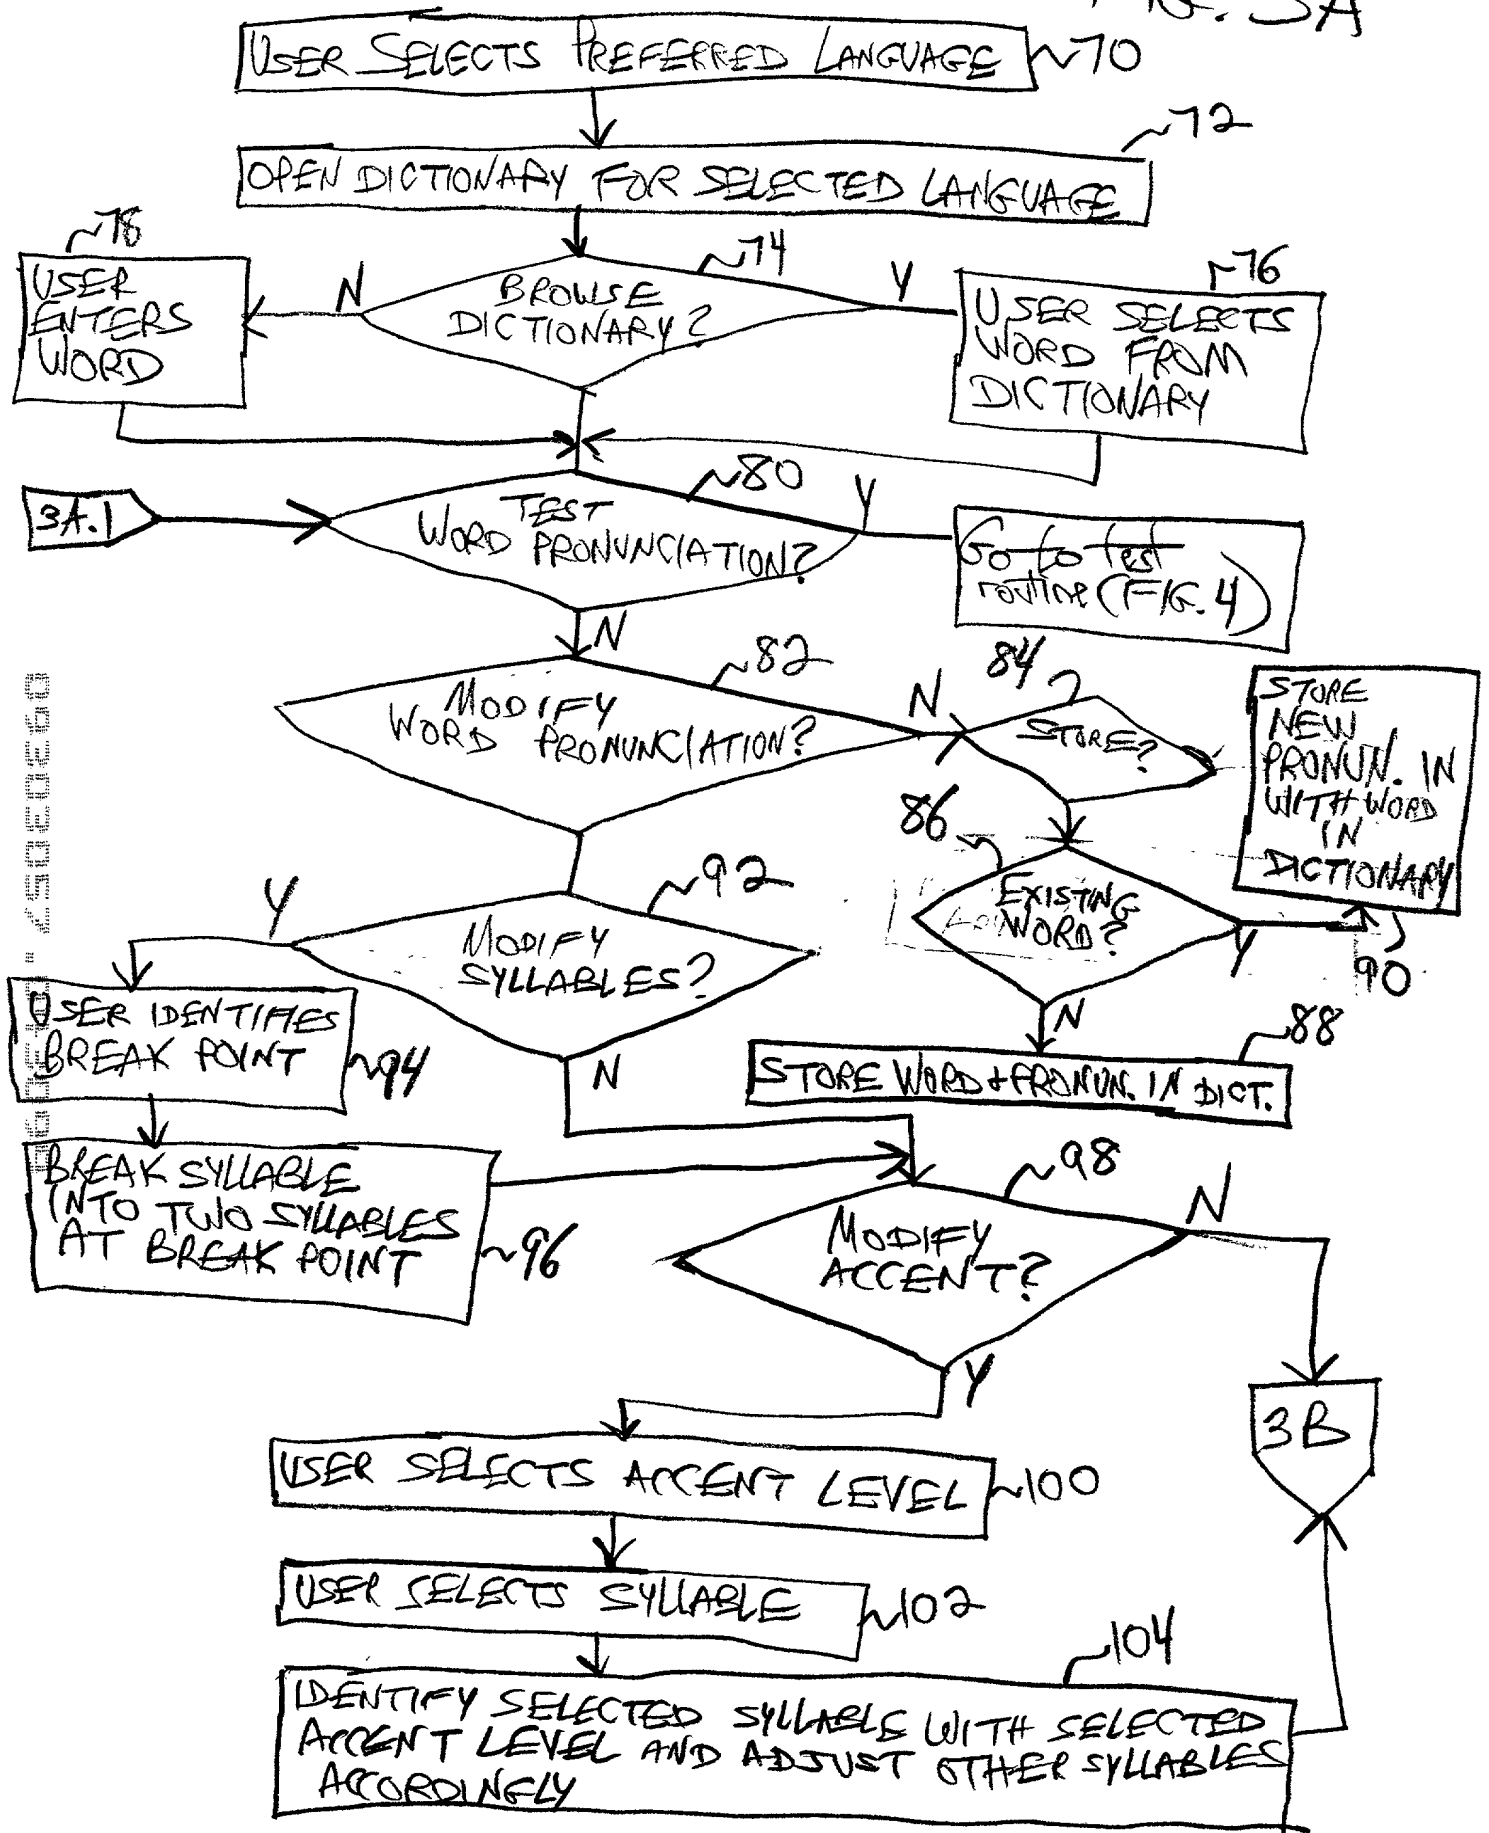 FIG. 3A
USER SELECTS PREFERRED LANGUAGE
70
72
OPEN DICTIONARY FOR SELECTED LANGUAGE
78
USER
ENTERS
WORD
N
74
BROWSE
DICTIONARY?
Y
76
USER SELECTS
WORD FROM
DICTIONARY
3A.1
80
TEST
WORD PRONUNCIATION?
Y
Go to test
routine (FIG. 4)
N
82
MODIFY
WORD PRONUNCIATION?
N
84
STORE?
STORE
NEW
PRONUN. IN
WITH WORD
IN
DICTIONARY
90
86
EXISTING
WORD?
Y
N
88
STORE WORD + PRONUN. IN DICT.
92
MODIFY
SYLLABLES?
Y
N
USER IDENTIFIES
BREAK POINT
94
BREAK SYLLABLE
INTO TWO SYLLABLES
AT BREAK POINT
96
98
MODIFY
ACCENT?
N
Y
3B
USER SELECTS ACCENT LEVEL
100
USER SELECTS SYLLABLE
102
104
IDENTIFY SELECTED SYLLABLE WITH SELECTED
ACCENT LEVEL AND ADJUST OTHER SYLLABLES
ACCORDINGLY